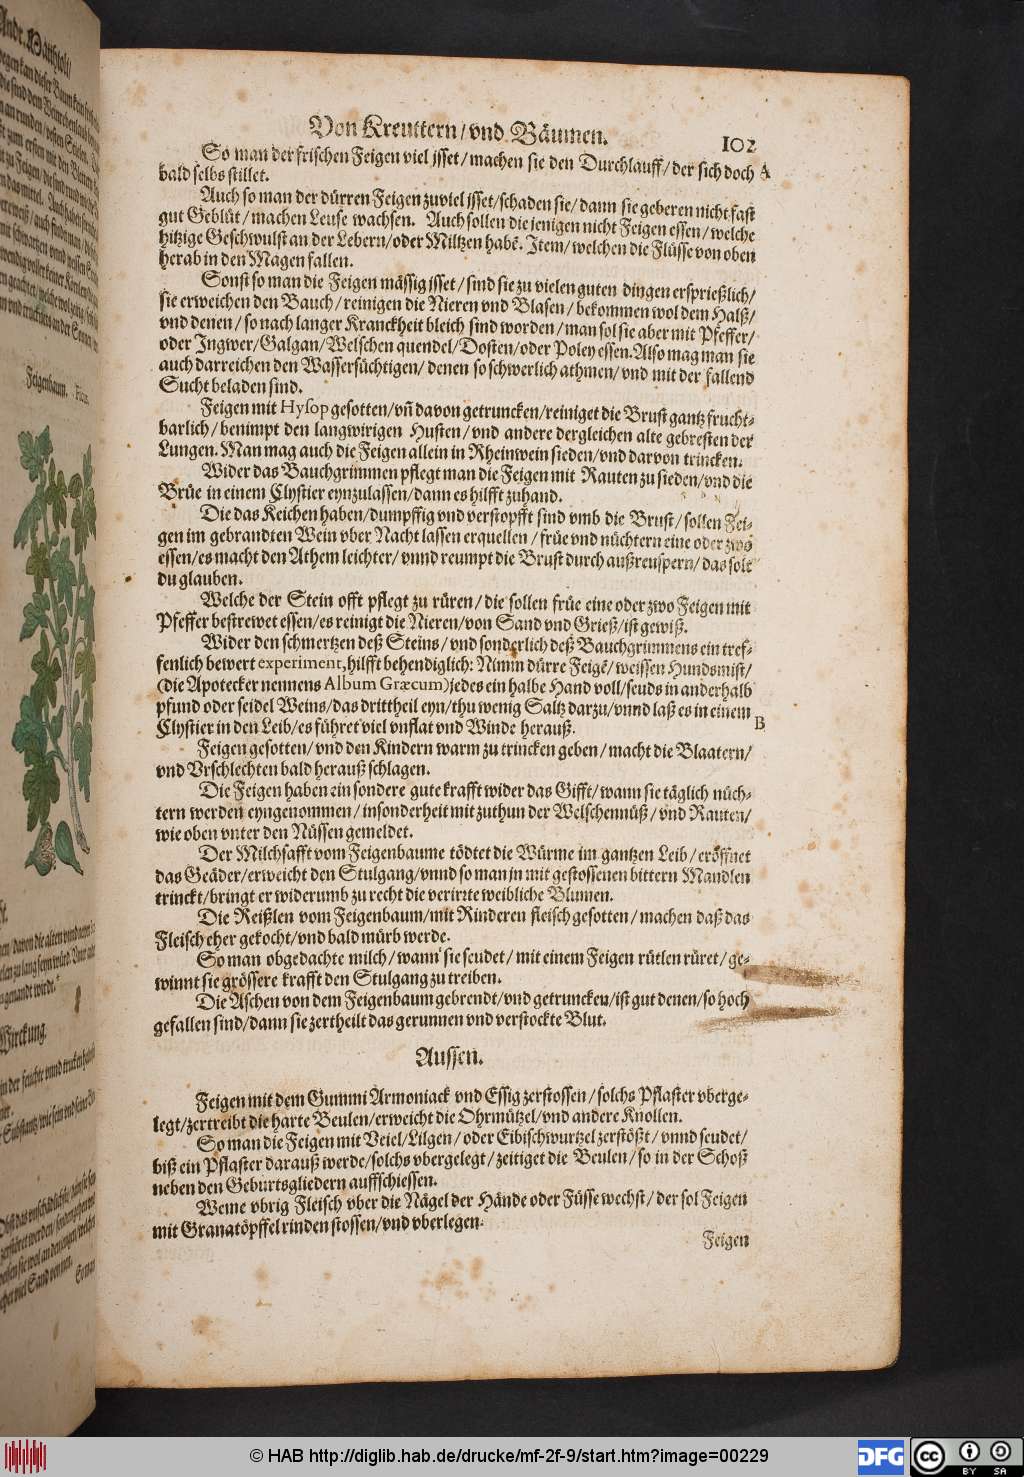 Von Kreuttern/vnd Bäumen. 102
So man der frischen Feigen viel jsset/machen sie den Durchlauff/der sich doch A
bald selbs stillet.
Auch so man der dürren Feigen zuviel jsset/schaden sie/dann sie geberen nicht fast
gut Geblüt/machen Leuse wachsen. Auch sollen die jenigen nicht Feigen essen/welche
hitzige Geschwulst an der Lebern/oder Miltzen habē. Item/welchen die Flüsse von oben
herab in den Magen fallen.
Sonst so man die Feigen mässig jsset/sind sie zu vielen guten dingen ersprießlich/
sie erweichen den Bauch/reinigen die Nieren vnd Blasen/bekommen wol dem Halß/
vnd denen/so nach langer Kranckheit bleich sind worden/man sol sie aber mit Pfeffer/
oder Ingwer/Galgan/Welschen quendel/Dosten/oder Poley essen. Also mag man sie
auch darreichen den Wassersüchtigen/denen so schwerlich athmen/vnd mit der fallend
Sucht beladen sind.
Feigen mit Hysop gesotten/vñ davon getruncken/reiniget die Brust gantz frucht-
barlich/benimpt den langwirigen Husten/vnd andere dergleichen alte gebresten der
Lungen. Man mag auch die Feigen allein in Rheinwein sieden/vnd darvon trincken.
Wider das Bauchgrimmen pflegt man die Feigen mit Rauten zu sieden/vnd die
Brüe in einem Clystier eynzulassen/dann es hilfft zuhand.
Die das Keichen haben/dumpffig vnd verstopfft sind vmb die Brust/sollen Fei-
gen im gebrandten Wein vber Nacht lassen erquellen/früe vnd nüchtern eine oder zwo
essen/es macht den Athem leichter/vnnd reumpt die Brust durch außreuspern/das solt
du glauben.
Welche der Stein offt pflegt zu rüren/die sollen früe eine oder zwo Feigen mit
Pfeffer bestrewet essen/es reinigt die Nieren/von Sand vnd Grieß/ist gewiß.
Wider den schmertzen deß Steins/vnd sonderlich deß Bauchgrimmens ein tref-
fenlich bewert experiment, hilfft behendiglich: Nimm dürre Feigē/weissen Hundsmist/
(die Apotecker nennens Album Græcum) jedes ein halbe Hand voll/seuds in anderhalb
pfund oder seidel Weins/das drittheil eyn/thu wenig Saltz darzu/vnnd laß es in einem
Clystier in den Leib/es führet viel vnflat vnd Winde herauß. B
Feigen gesotten/vnd den Kindern warm zu trincken geben/macht die Blaatern/
vnd Vrschlechten bald herauß schlagen.
Die Feigen haben ein sondere gute krafft wider das Gifft/wann sie täglich nüch-
tern werden eyngenommen/insonderheit mit zuthun der Welschennüß/vnd Rauten/
wie oben vnter den Nüssen gemeldet.
Der Milchsafft vom Feigenbaume tödtet die Würme im gantzen Leib/eröffnet
das Geäder/erweicht den Stulgang/vnnd so man jn mit gestossenen bittern Mandlen
trinckt/bringt er widerumb zu recht die verirrte weibliche Blumen.
Die Reißlen vom Feigenbaum/mit Rinderen fleisch gesotten/machen daß das
Fleisch eher gekocht/vnd bald mürb werde.
So man obgedachte milch/wann sie seudet/mit einem Feigen rütlen rüret/ge-
winnt sie grössere krafft den Stulgang zu treiben.
Die Aschen von dem Feigenbaum gebrendt/vnd getruncken/ist gut denen/so hoch
gefallen sind/dann sie zertheilt das gerunnen vnd verstockte Blut.
Aussen.
Feigen mit dem Gummi Armoniack vnd Essig zerstossen/solchs Pflaster vberge-
legt/zertreibt die harte Beulen/erweicht die Ohrmützel/vnd andere Knollen.
So man die Feigen mit Veiel/Lilgen/oder Eibischwurtzel zerstößt/vnnd seudet/
biß ein Pflaster darauß werde/solchs vbergelegt/zeitiget die Beulen/so in der Schoß
neben den Geburtsgliedern auffschiessen.
Weme vbrig Fleisch vber die Nägel der Hände oder Füsse wechst/der sol Feigen
mit Granatöpffel rinden stossen/vnd vberlegen.
Feigen
Feigenbaum. Ficus.
© HAB http://diglib.hab.de/drucke/mf-2f-9/start.htm?image=00229
DFG
cc BY SA